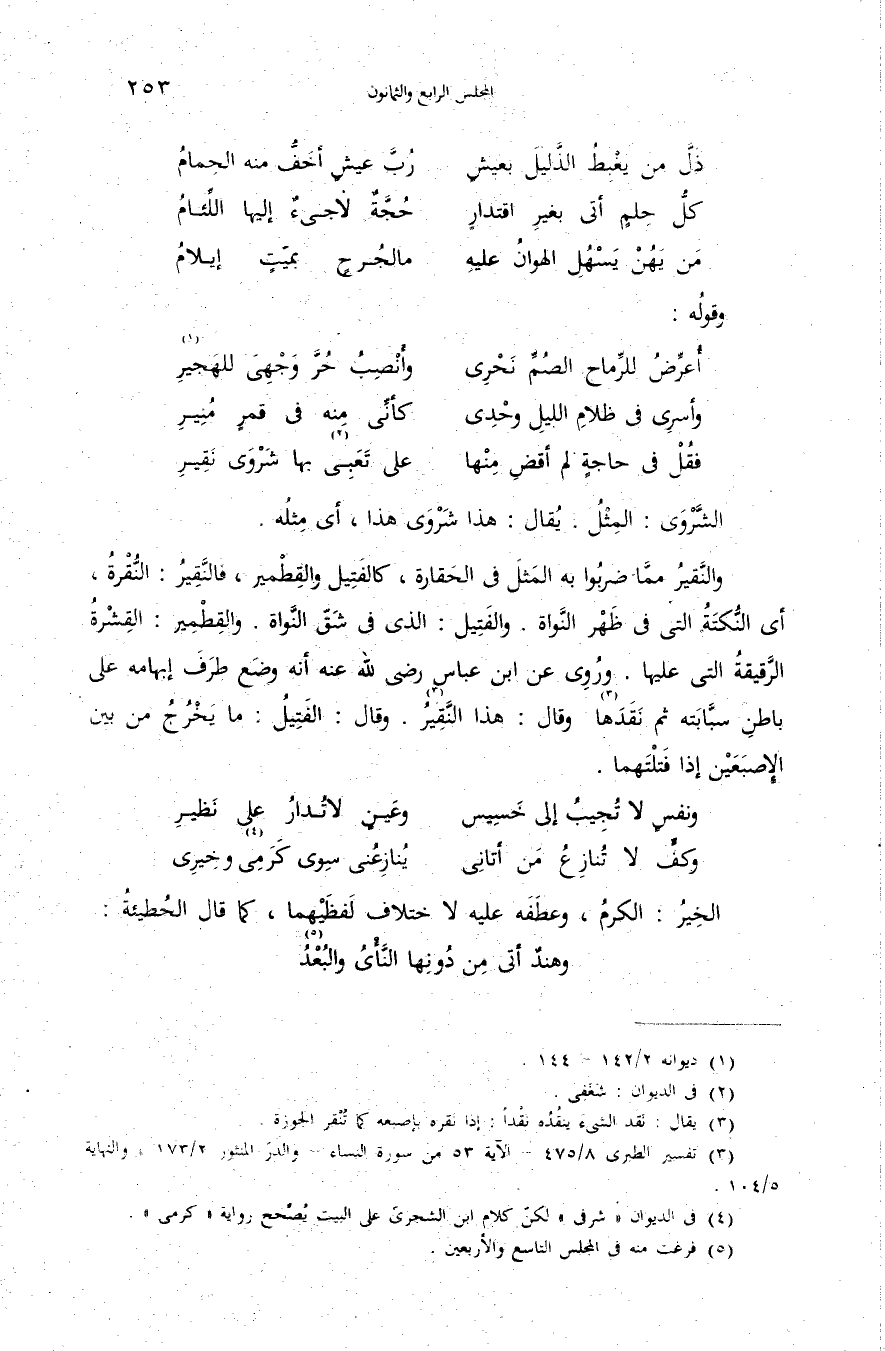 المجلس الرابع والثمانون ٢٥٣
ذَلَّ من يغْبِطُ الذَّليلَ بعيشٍ رُبَّ عيشٍ أخَفُّ منه الحِمامُ
كلُّ حِلمٍ أتى بغيرِ اقتدارٍ حُجَّةٌ لاجىءٌ إليها اللِّئامُ
مَن يَهُنْ يَسْهُلِ الهوانُ عليهِ مالجُرحٍ بميّتٍ إيلامُ
وقولُه :
أُعرِّضُ للرِّماح الصُمِّ نَحْرِى وأَنْصِبُ حُرَّ وَجْهِىَ للهَجيرِ (١)
وأسرِى فى ظلامِ الليلِ وحْدِى كأنِّى مِنه فى قمرٍ مُنِيرِ
فقُلْ فى حاجةٍ لم أقضِ مِنْها على تَعَبِى (٢) بها شَرْوَى نَقِيرِ
الشَّرْوَى : المِثْلُ . يُقال : هذا شَرْوَى هذا ، أى مِثلُه .
والنَّقيرُ ممَّا ضربُوا به المَثلَ فى الحَقارة ، كالفَتِيل والقِطْمير ، فالنَّقِيرُ : النُّقْرةُ ،
أى النُّكتَةُ التى فى ظَهْر النَّواة . والفَتِيل : الذى فى شَقّ النَّواة . والقِطْمِير : القِشْرةُ
الرَّقيقةُ التى عليها . ورُوِى عن ابن عباس رضى الله عنه أنه وضَع طرَفَ إبهامه على
باطنِ سبَّابَته ثم نَقَدَها (٣) وقال : هذا النَّقِيرُ (٣) . وقال : الفَتِيلُ : ما يَخْرُجُ من بين
الإصبَعَيْن إذا فَتلْتَهما .
ونفسٍ لا تُجِيبُ إلى خَسِيس وعَينٍ لاتُدارُ على نَظيرِ
وكفٍّ لا تُنازِعُ مَن أتانِى يُنازِعُنى سِوى كَرَمِى (٤) وخِيرِى
الخِيرُ : الكرمُ ، وعطَفَه عليه لا ختلاف لَفظَيْهِما ، كما قال الحُطيئةُ :
وهندٌ أتى مِن دُونِها النَّأْىُ والبُعْدُ (٥)
(١) ديوانه ١٤٢/٢ – ١٤٤ .
(٢) فى الديوان : شَغَفى .
(٣) يقال : نَقد الشىءَ ينقُدُه نقْداً : إذا نَقره بإصبعه كما تُنْقر الجوزة .
(٣) تفسير الطبرى ٤٧٥/٨ – الآية ٥٣ من سورة النساء – والدرّ المنثور ١٧٣/٢ ، والنهاية
١٠٤/٥ .
(٤) فى الديوان « شرفى » لكنّ كلام ابن الشجرىّ على البيت يُصْحح رواية « كرمى » .
(٥) فرغت منه فى المجلس التاسع والأربعين .